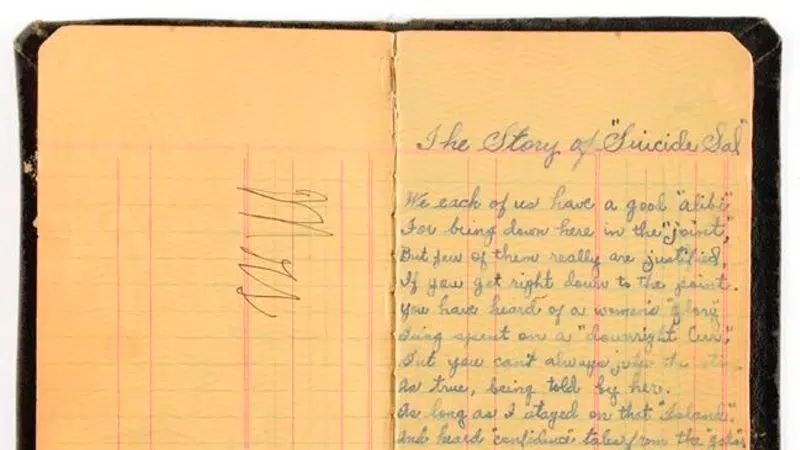 The Story of "Suicide Sal"
We each of us have a good "alibi"
For being down here in the "joint",
But few of them really are justified,
If you get right down to the point.
You have heard of a woman's "glory"
Being spent on a "downright Cur",
But you can't always judge the story
As true, being told by her.
As long as I stayed on that "Island".
And heard "confidence" tales from the "gals"